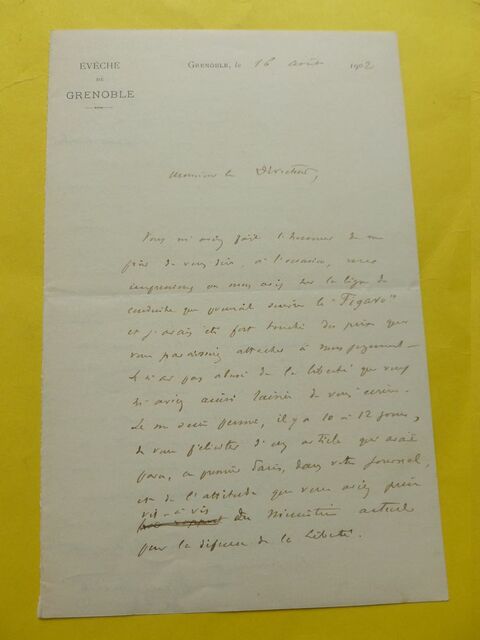 ÉVÊCHÉ
DE
GRENOBLE
GRENOBLE, le 16 août 1902
Monsieur le Directeur,
Vous m'aviez fait l'honneur de me
prier de vous dire, à l'occasion, mes
impressions ou mon avis sur la ligne de
conduite que pourrait suivre le "Figaro"
et j'avais été fort touché du prix que
vous paraissiez attacher à mon jugement –
Je n'ai pas abusé de la liberté que vous
m'aviez ainsi laissée de vous écrire.
Je me suis permis, il y a 10 à 12 jours,
de vous féliciter d'un article qui avait
paru, en premier Paris, dans votre journal,
et de l'attitude que vous aviez prise
vis-à-vis
par rapport du Ministère actuel
pour la défense de la Liberté.